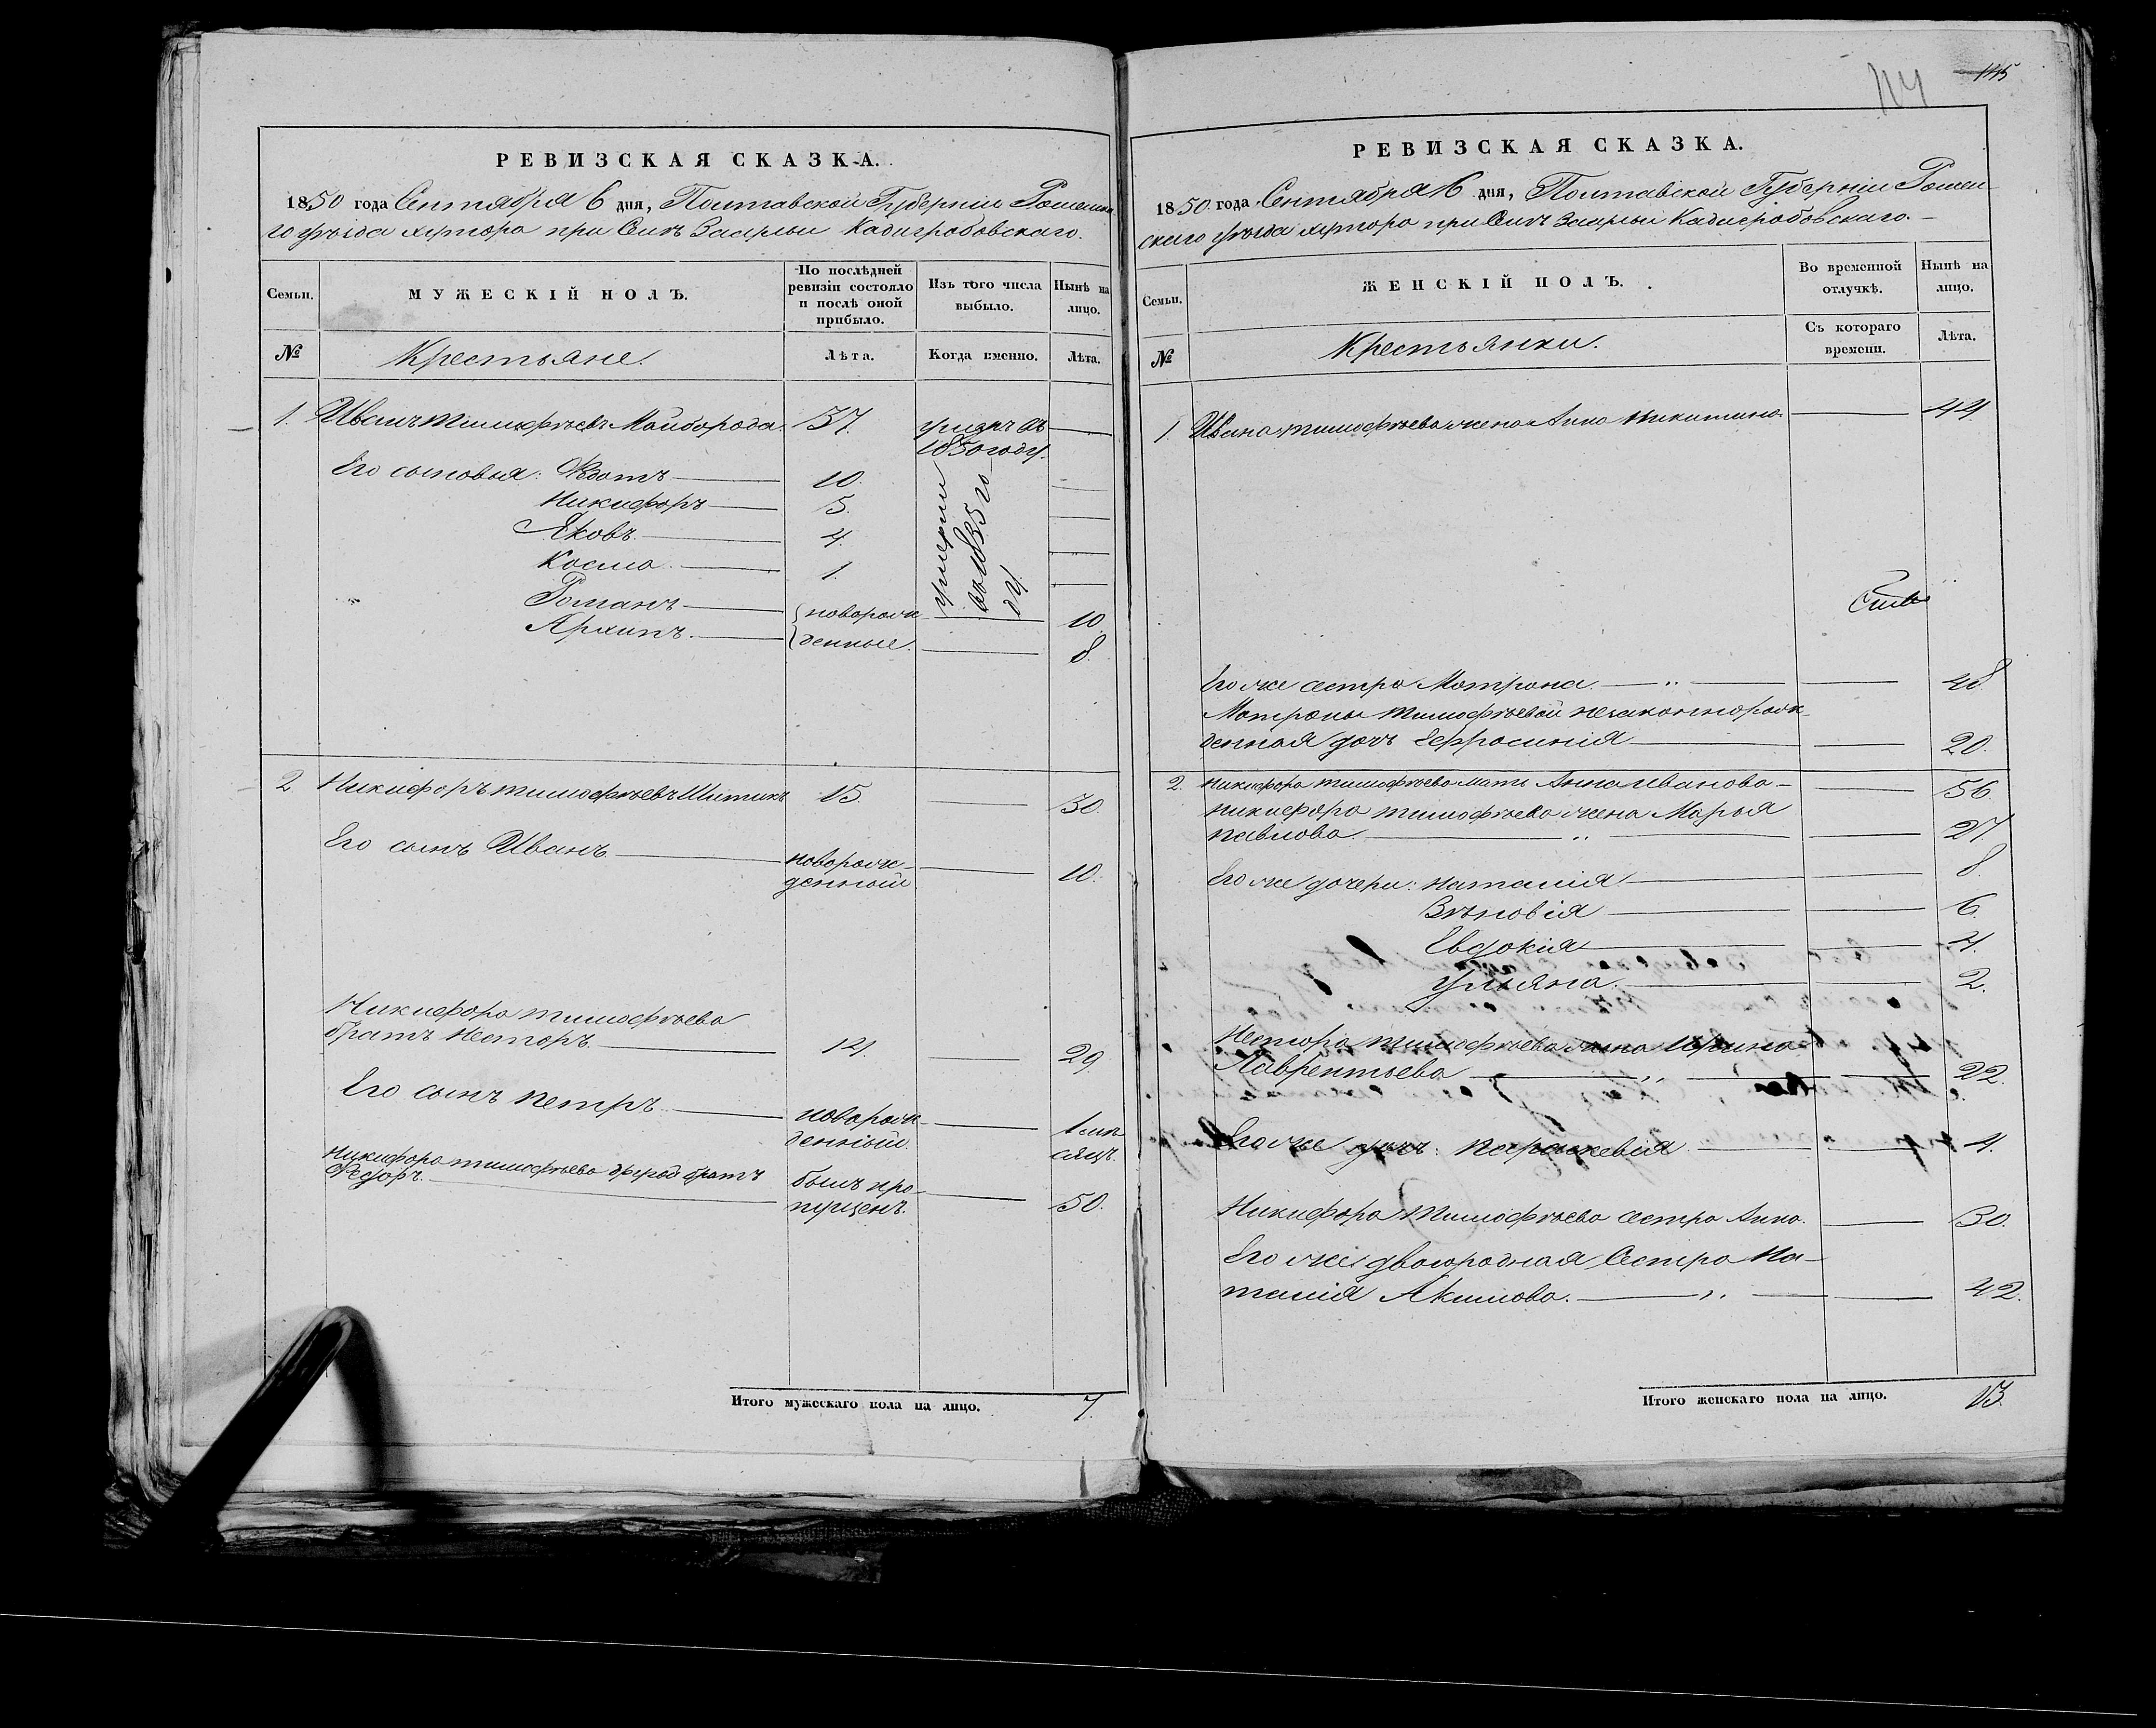 РЕВИЗСКАЯ СКАЗКА.
1850 года Сентября 6 дня, Полтавской Губерніи Роменска
го уѣзда хутора при Кадигробовскаго.
Семьи.
МУЖЕСКІЙ ПОЛЪ.
По послѣдней ревизіи состояло и послѣ оной прибыло.
Изъ того числа выбыло.
Нынѣ на лицо.
№
Крестьяне.
Лѣта.
Когда именно.
Лѣта.
1. Иванъ Тимофѣевъ Майборода 37. въ
1850 году.
Его сыновья: Ѳедотъ 10.
Никифоръ 5.
Яковъ 4.
Косма 1.
умерли
Романъ новорож 10.
Архипъ денные 8.
2. Никифоръ Тимофѣевъ Шитикъ 15. 30.
Его сынъ Иванъ новорож-
денный 10.
Никифора Тимофѣева
братъ Несторъ 14. 29
Его сынъ Петръ новорож
денный 1 мѣ
сяцъ.
Никифора Тимофѣева братъ
Федоръ. былъ про-
пущенъ. 50.
Итого мужескаго пола на лицо. 7.
114 145
РЕВИЗСКАЯ СКАЗКА.
1850 года Сентября 6 дня, Полтавской Губерніи Ромен
скаго уѣзда хутора при Кадигробовскаго.
Семьи.
ЖЕНСКІЙ ПОЛЪ.
Во временной отлучкѣ.
Нынѣ на лицо.
№
Крестьянки.
Съ котораго времени.
Лѣта.
1 Ивана Тимофѣева жена Анна Никитина 44.
Его же сестра Матрона 48
Матроны Тимофѣевой незаконнорож
денная дочь Ефросинія 20.
2. Никифора Тимофѣева мать Анна Иванова 56.
Никифора Тимофѣева жена Марья
Павлова 27.
Его же дочери: Наталія 8.
Зѣновія 6.
Евдокія 4.
Ульяна 2.
Нестора Тимофѣева жена Ирина
Лаврентьева 22.
Его же дочь: Параскевія 4.
Никифора Тимофѣева сестра Анна. 30.
Его же двоюродная Сестра На-
талія Акимова. 42.
Итого женскаго пола на лицо. 13.